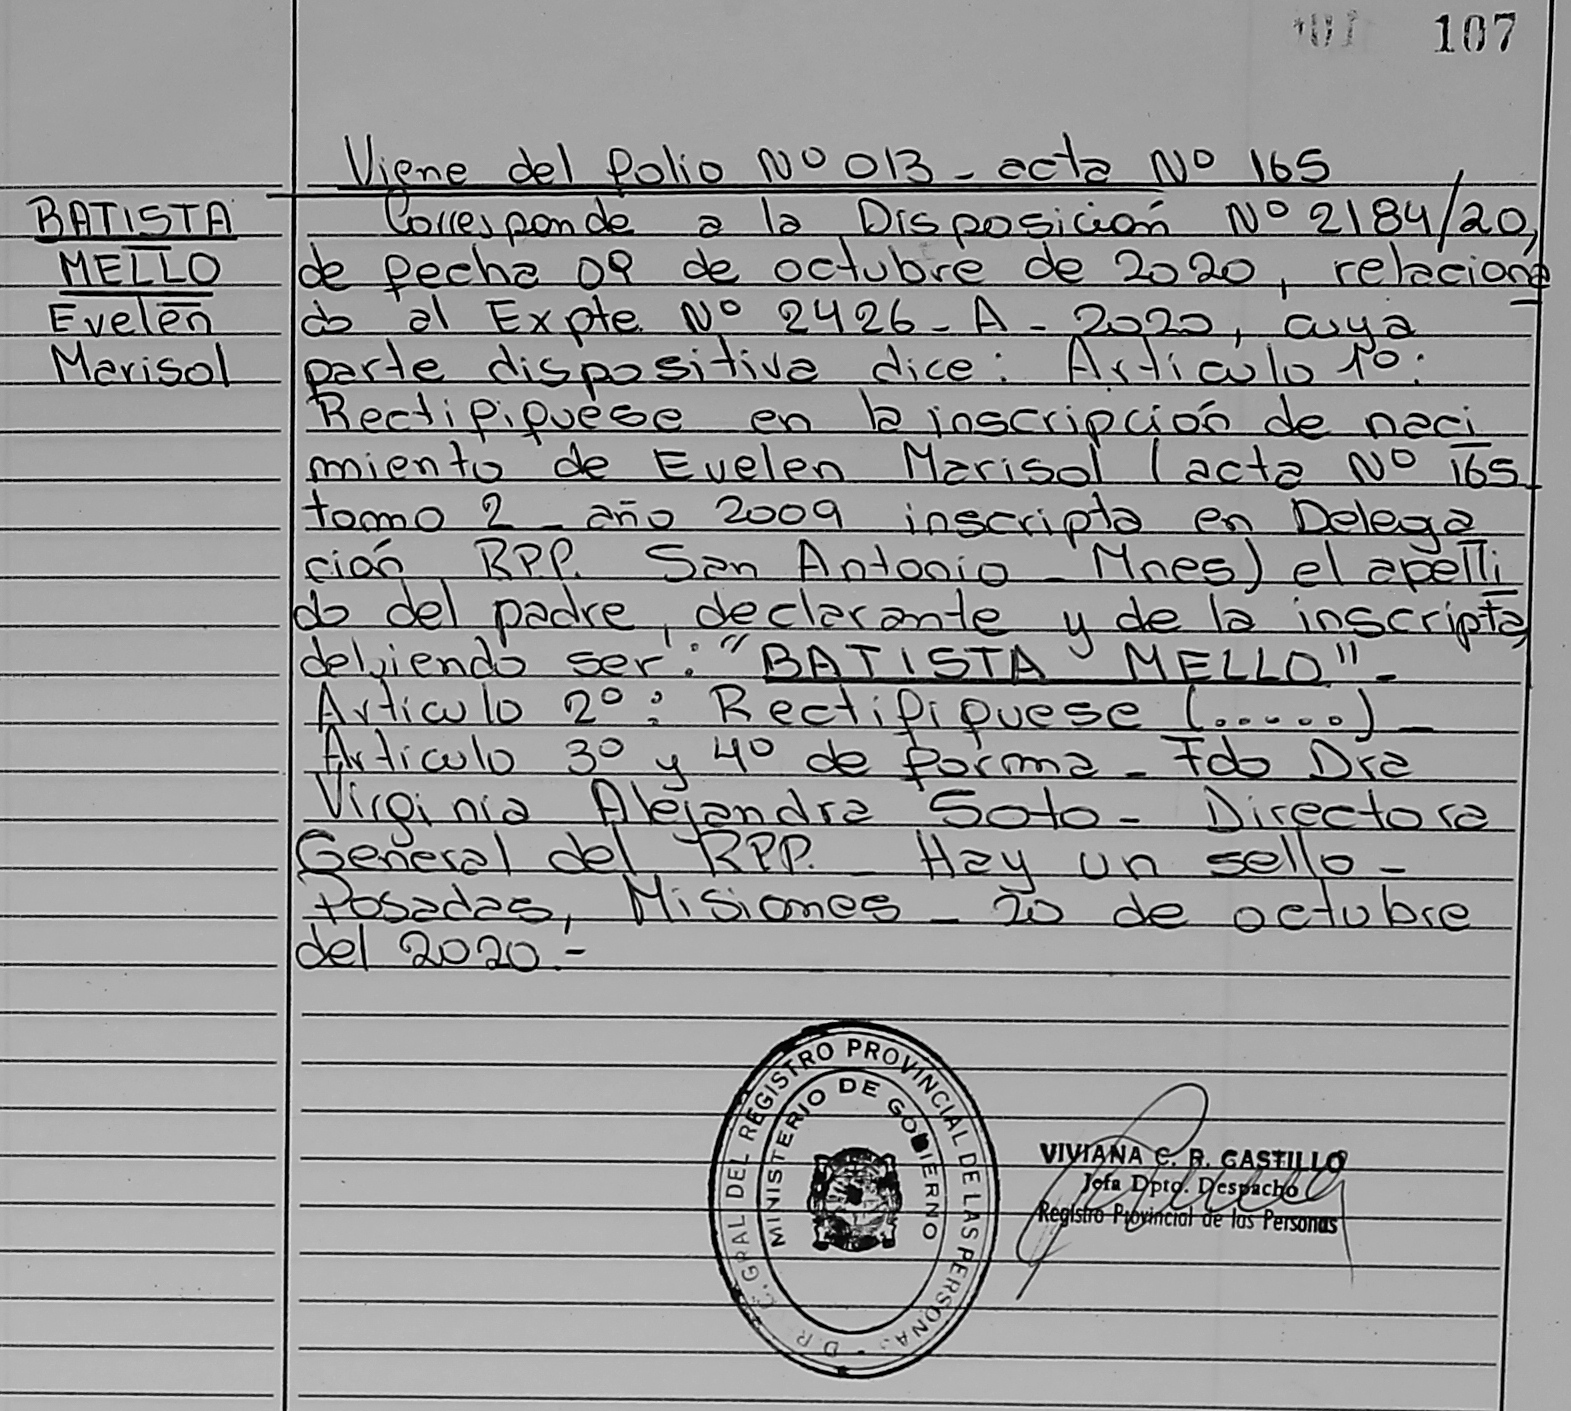 107
Viene del folio Nº 013 - acta Nº 165
BATISTA
MELLO
Evelen
Marisol
Corresponde a la Disposición Nº 2184/20,
de fecha 09 de octubre de 2020, relaciona
do al Expte Nº 2426-A-2020, cuya
parte dispositiva dice: Artículo 1º:
Rectifiquese en la inscripción de naci
miento de Evelen Marisol (acta Nº 165
tomo 2 - año 2009 inscripta en Delega
ción R.P.P. San Antonio - Mnes) el apelli
do del padre, declarante y de la inscripta,
debiendo ser: "BATISTA MELLO" -
Artículo 2º: Rectifiquese (......) -
Artículo 3º y 4º de forma - Fdo Dra
Virginia Alejandra Soto - Directora
General del RPP. - Hay un sello -
Posadas, Misiones - 20 de octubre
del 2020.-
GRAL DEL REGISTRO PROVINCIAL DE LAS PERSONAS
MINISTERIO DE GOBIERNO
VIVIANA C. R. CASTILLO
Jefa Dpto. Despacho
Registro Provincial de las Personas